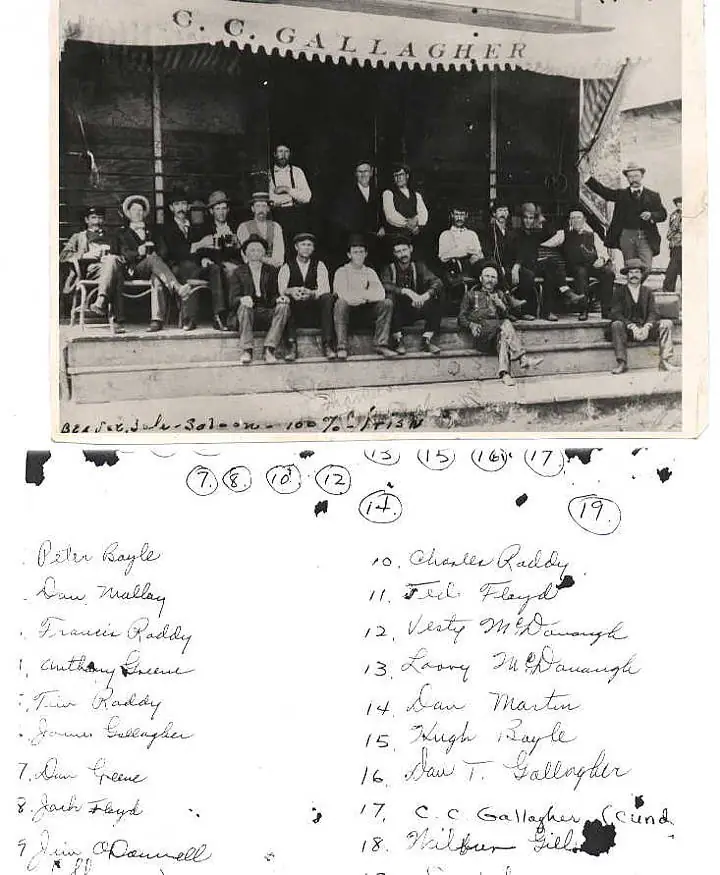 C. C. GALLAGHER
Saloon - 100% IRISH
13 15 16 17
7 8 10 12
14
19.
Peter Boyle
Dan Mallay
Francis Roddy
Anthony Greene
Tim Roddy
James Gallagher
7. Dan Greene
8. Jack Floyd
9 Jim O'Donnell
10. Charles Roddy
11. Ted Floyd
12. Vesty McDonaugh
13. Larry McDonaugh
14. Dan Martin
15. Hugh Boyle
16. Dan T. Gallagher
17. C. C. Gallagher (und
18. Wilbur Gill